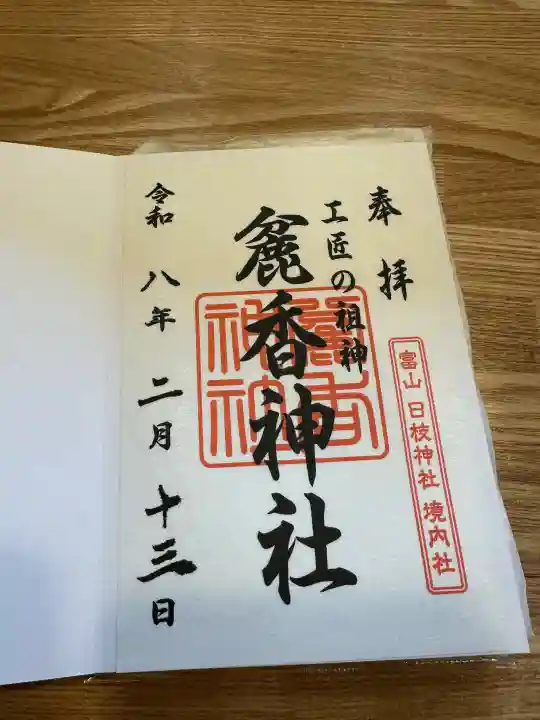 奉拝
工匠の祖神
麁香神社
富山 日枝神社 境内社
令和 八年 二月 十三日